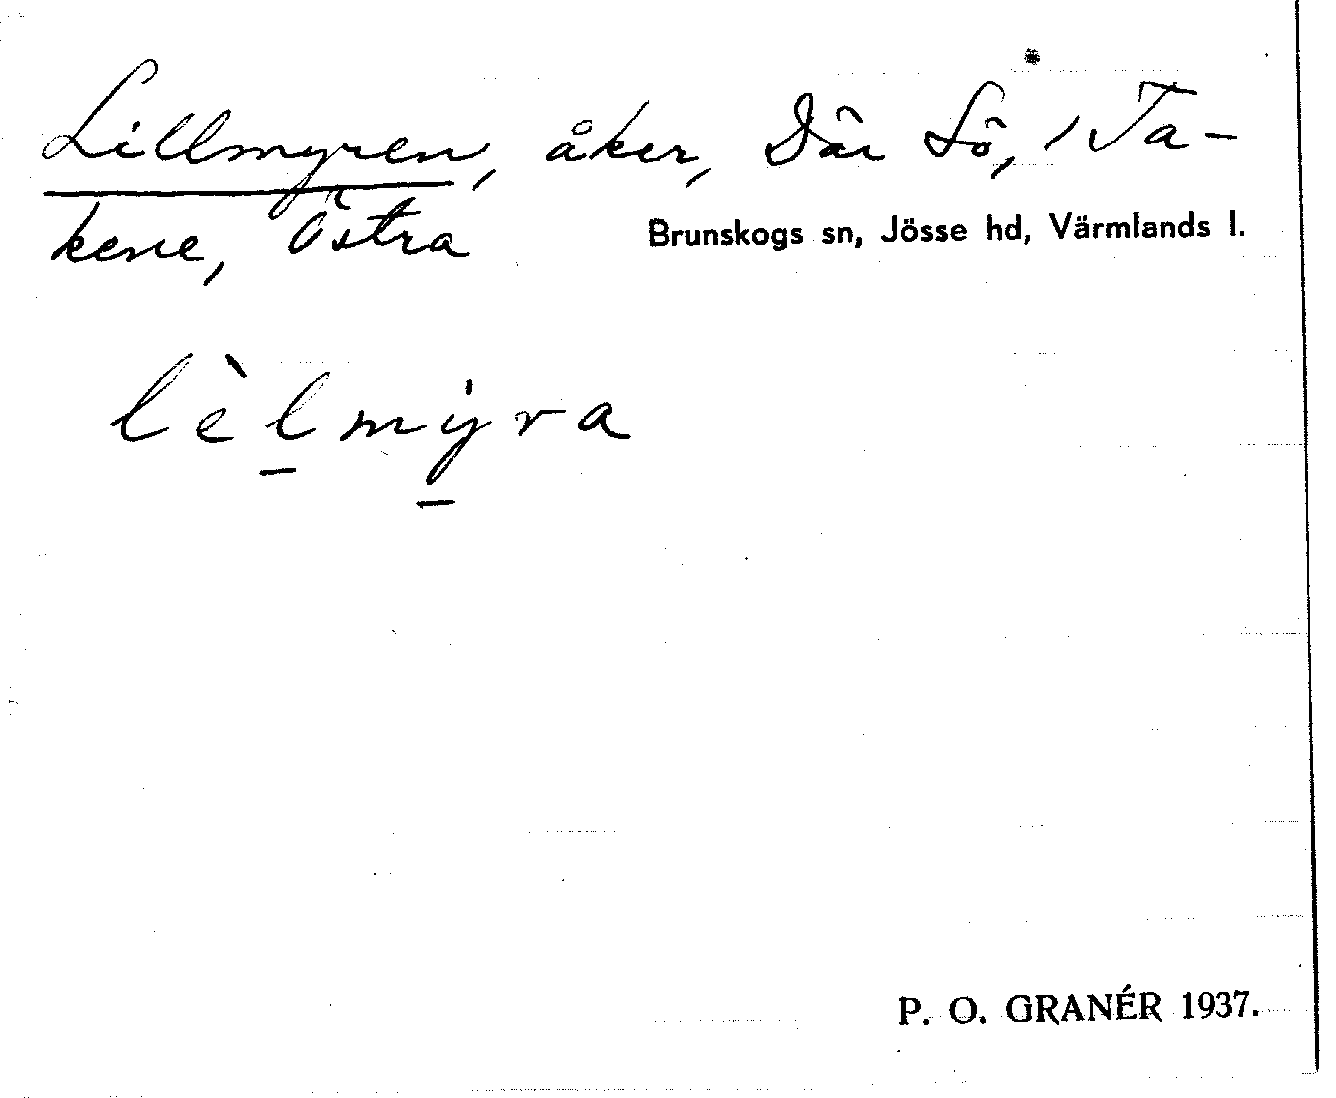 Lillmyren, åker, Där Sö, / Ta-
kene, Östra
Brunskogs sn, Jösse hd, Värmlands l.
lèl̲my̲̍ra
P. O. GRANÉR 1937.